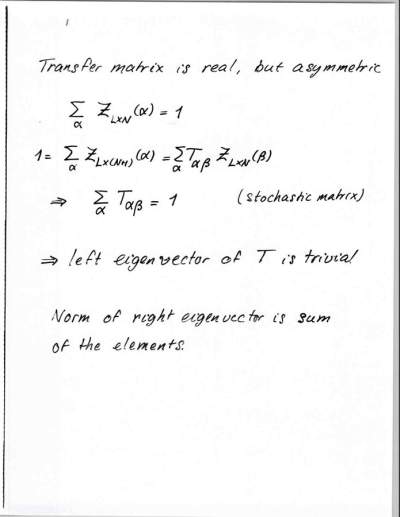 Transfer matrix is real, but asymmetric
∑_α Z_{L×N}(α) = 1
1 = ∑_α Z_{L×(N+1)}(α) = ∑_α T_{αβ} Z_{L×N}(β)
⇒ ∑_α T_{αβ} = 1 (stochastic matrix)
⇒ left eigenvector of T is trivial
Norm of right eigenvector is sum
of the elements.